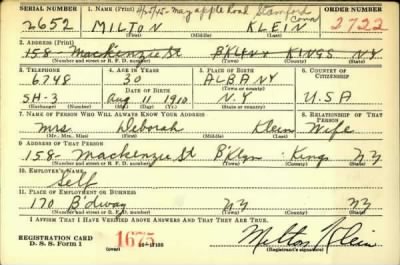 SERIAL NUMBER 1. NAME (Print) May apple Road Stamford ORDER NUMBER
Conn
2652 MILTON KLEIN 2722
(First) (Middle) (Last)
2. ADDRESS (Print)
158- Mackenzie St B'KLYN KINGS NY
(Number and street or R. F. D. number) (Town) (County) (State)
3. TELEPHONE 4. AGE IN YEARS 5. PLACE OF BIRTH 6. COUNTRY OF CITIZENSHIP
6748 30 ALBANY
DATE OF BIRTH (Town or county)
SH-3 Aug 11 1910 N.Y U.S.A
(Exchange) (Number) (Mo.) (Day) (Yr.) (State or country)
7. NAME OF PERSON WHO WILL ALWAYS KNOW YOUR ADDRESS 8. RELATIONSHIP OF THAT PERSON
Mrs Deborah Klein Wife
(Mr., Mrs., Miss) (First) (Middle) (Last)
9. ADDRESS OF THAT PERSON
158- Mackenzie St B'klyn Kings NY
(Number and street or R. F. D. number) (Town) (County) (State)
10. EMPLOYER'S NAME
Self
11. PLACE OF EMPLOYMENT OR BUSINESS
170 B'dway NY NY
(Number and street or R. F. D. number) (Town) (County) (State)
I AFFIRM THAT I HAVE VERIFIED ABOVE ANSWERS AND THAT THEY ARE TRUE.
REGISTRATION CARD
D. S. S. Form 1 1675 Milton Klein
(Registrant's signature)